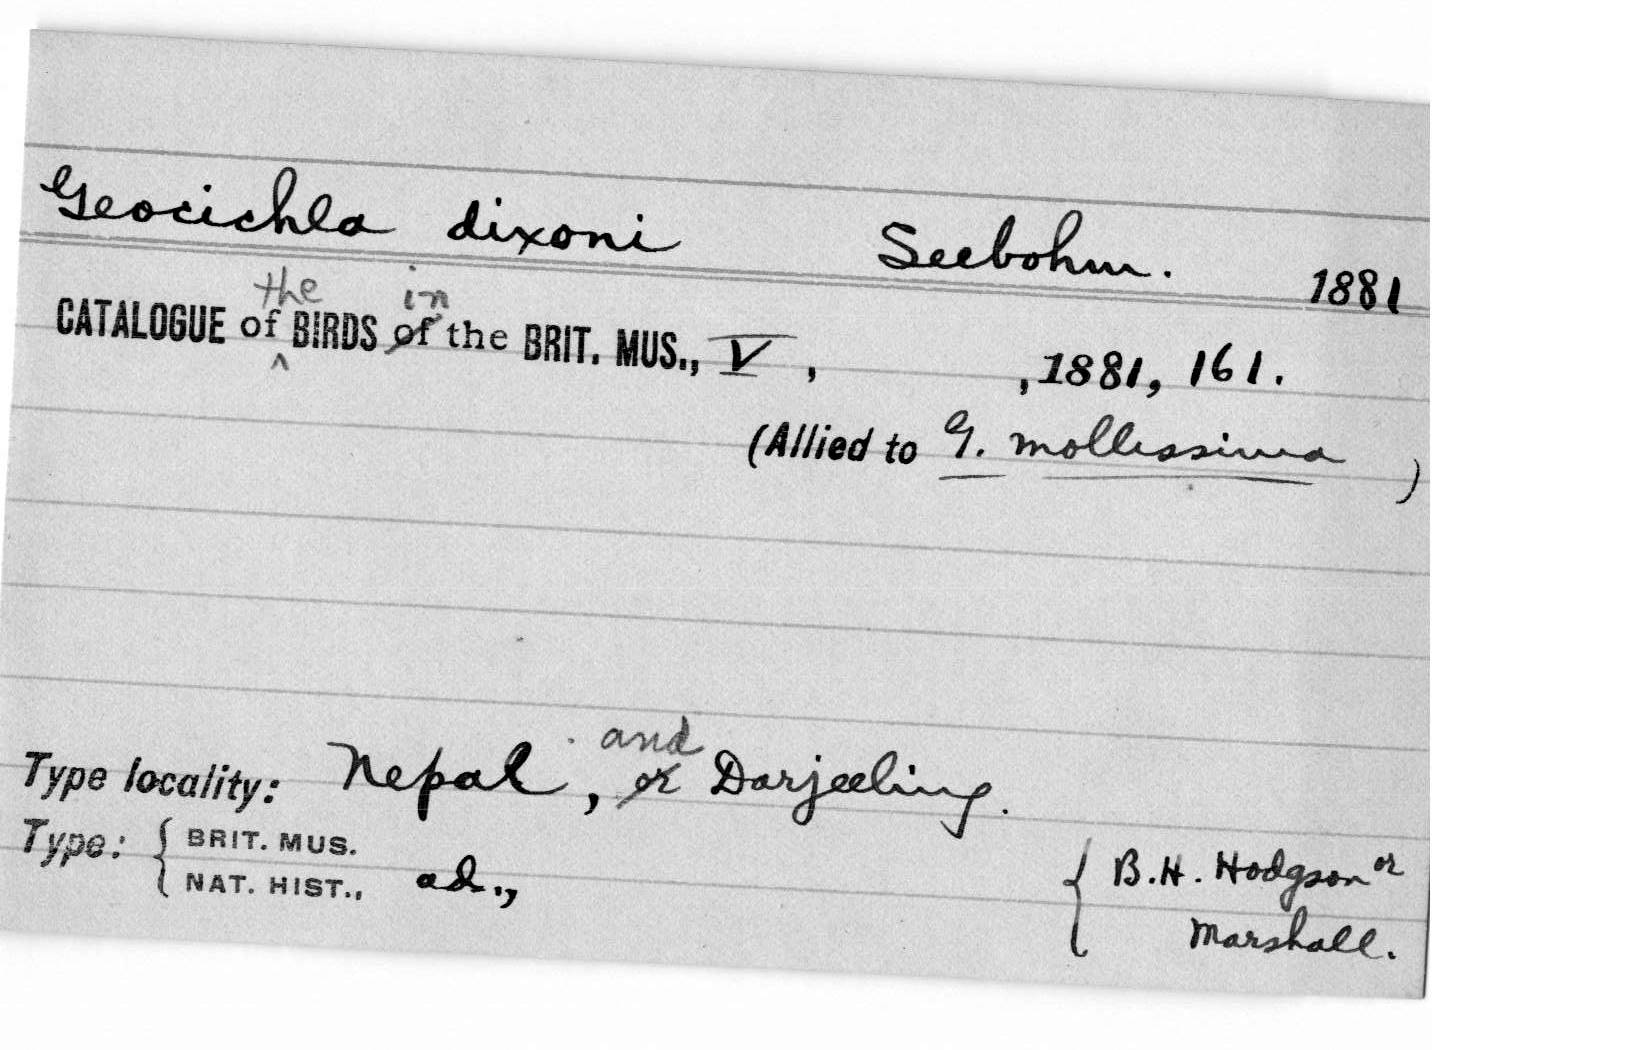 Geocichla dixoni Seebohm. 1881
the in
CATALOGUE of ^ BIRDS of the BRIT. MUS., V , , 1881, 161.
(Allied to G. mollissima )
and
Type locality: Nepal, or Darjeeling.
Type: { BRIT. MUS. NAT. HIST., ad., { B.H. Hodgson or
Marshall.